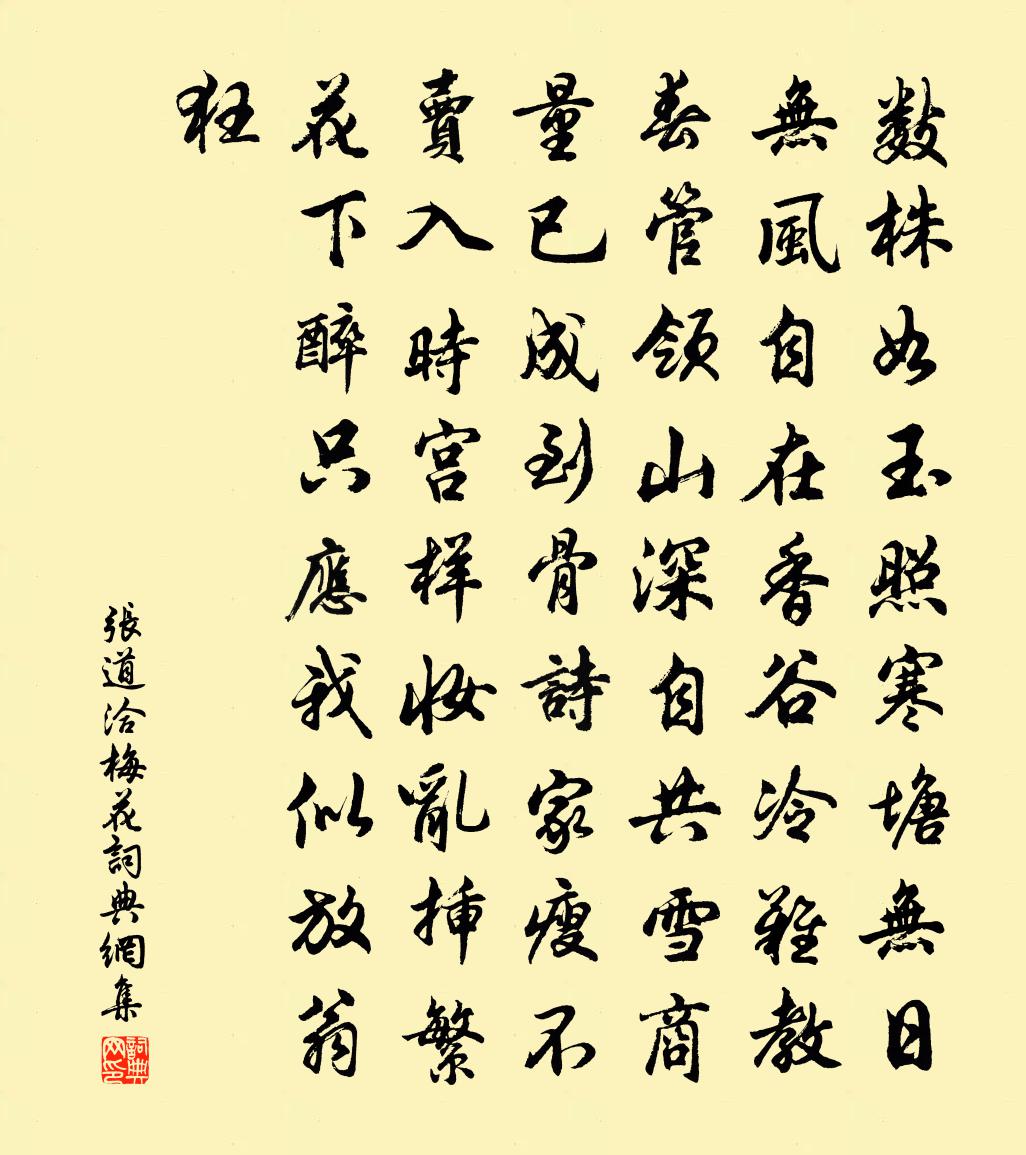 数株如玉照寒塘無日
無風自在香谷冷難教
春管領山深自共雪商
量已成到骨詩家瘦不
賣入時宫样妝亂插繁
花下醉只應我似放翁
狂
張道洽梅花詞典網集
詞典网印